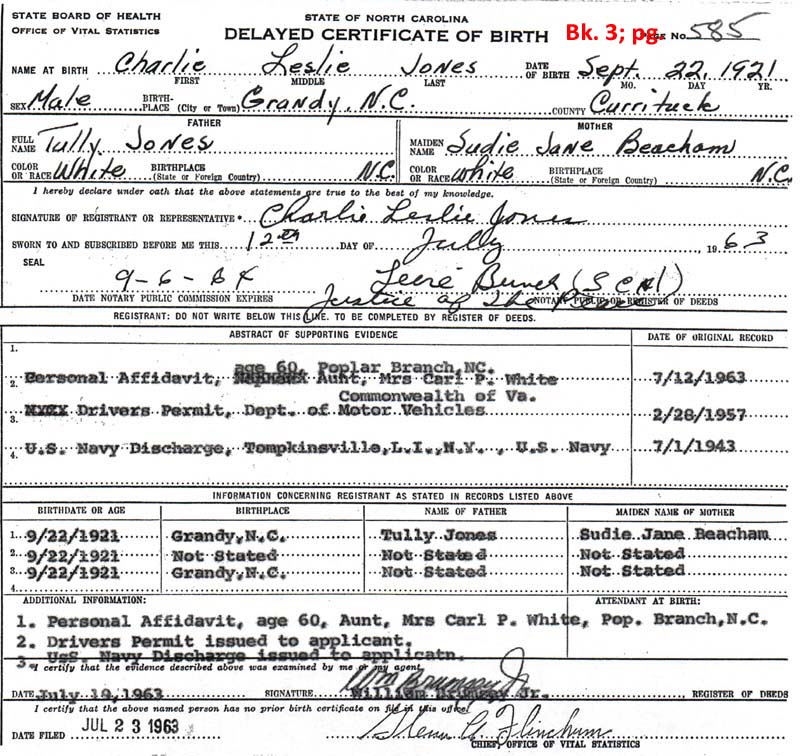 STATE BOARD OF HEALTH
OFFICE OF VITAL STATISTICS
STATE OF NORTH CAROLINA
DELAYED CERTIFICATE OF BIRTH Bk. 3; pg. No. 585
NAME AT BIRTH Charlie Leslie Jones DATE OF BIRTH Sept. 22, 1921
FIRST MIDDLE LAST MO. DAY YR.
SEX Male BIRTH-PLACE (City or Town) Grandy, N.C. COUNTY Currituck
FATHER MOTHER
FULL NAME Tully Jones MAIDEN NAME Sudie Jane Beacham
COLOR OR RACE White BIRTHPLACE (State or Foreign Country) N.C. COLOR OR RACE White BIRTHPLACE (State or Foreign Country) N.C.
I hereby declare under oath that the above statements are true to the best of my knowledge.
SIGNATURE OF REGISTRANT OR REPRESENTATIVE Charlie Leslie Jones
SWORN TO AND SUBSCRIBED BEFORE ME THIS 12th DAY OF Jully 1963
SEAL
9-6-64 Bunch (Seal)
DATE NOTARY PUBLIC COMMISSION EXPIRES Justice of The Peace NOTARY PUBLIC OR REGISTER OF DEEDS
REGISTRANT: DO NOT WRITE BELOW THIS LINE. TO BE COMPLETED BY REGISTER OF DEEDS.
ABSTRACT OF SUPPORTING EVIDENCE DATE OF ORIGINAL RECORD
1.
age 60, Poplar Branch,NC.
2. Personal Affidavit, Aunt, Mrs Carl P. White 7/12/1963
Commonwealth of Va.
3. Drivers Permit, Dept. of Motor Vehicles 2/28/1957
4. U.S. Navy Discharge, Tompkinsville,L.I.,N.Y., U.S. Navy 7/1/1943
INFORMATION CONCERNING REGISTRANT AS STATED IN RECORDS LISTED ABOVE
BIRTHDATE OR AGE BIRTHPLACE NAME OF FATHER MAIDEN NAME OF MOTHER
1. 9/22/1921 Grandy,N.C. Tully Jones Sudie Jane Beacham
2. 9/22/1921 Not Stated Not Stated Not Stated
3. 9/22/1921 Grandy,N.C. Not Stated Not Stated
4.
ADDITIONAL INFORMATION: ATTENDANT AT BIRTH:
1. Personal Affidavit, age 60, Aunt, Mrs Carl P. White, Pop. Branch,N.C.
2. Drivers Permit issued to applicant.
3. U.S. Navy Discharge issued to applicatn.
I certify that the evidence described above was examined by me or my agent
Wm Brumsey Jr
DATE July 19,1963 SIGNATURE William Brumsey Jr. REGISTER OF DEEDS
I certify that the above named person has no prior birth certificate on file in this office.
DATE FILED JUL 23 1963 Glenn G. Flinchum
CHIEF, OFFICE OF VITAL STATISTICS